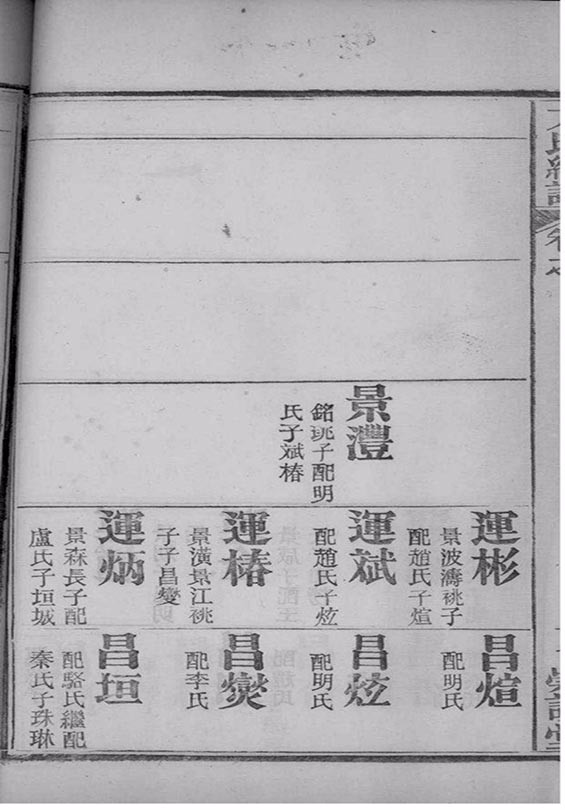 景灃
銘珧子配明
氏子斌椿
運彬
景波濤祧子
配趙氏子煊
運斌
配趙氏子炫
運椿
景潢景江祧
子子昌燮
運炳
景森長子配
盧氏子垣城
昌煊
配明氏
昌炫
配明氏
昌燮
配李氏
昌垣
配駱氏繼配
秦氏子珠琳